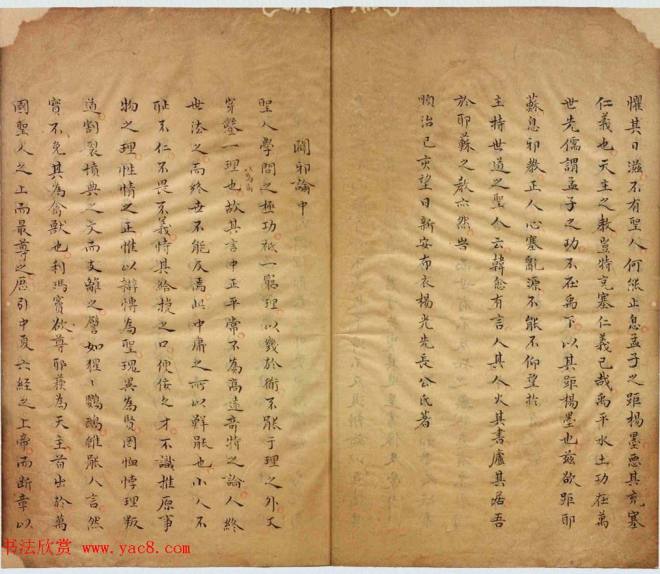 懼其日滋不有聖人何能止息孟子之距楊墨惡其充塞
仁義也天主之教豈特充塞仁義已哉禹平水土功在萬
世先儒謂孟子之功不在禹下以其距楊墨也兹欲距耶
蘇息邪教正人心塞亂源不能不仰望於
主持世道之聖人云韓愈有言人其人火其書廬其居吾
於耶蘇之教亦然皆
順治己亥望日新安布衣楊光先長公氏著
闢邪論中
聖人學問之極功祇一窮理以幾於衟不能于理之外又
穿鑿一理也故其言中正平常不為高遠奇特之論人終
世法之而終世不能及焉此中庸之所以鮮能也小人不
耻不仁不畏不義恃其給捷之口便佞之才不識推原事
物之理性情之正惟以辯博為聖瑰異為賢罔恤悖理叛
道割裂墳典之文而支離之譬如猩〻鸚鵡雖能人言然
實不免其為禽獸也利瑪竇欲尊耶蘓為天主首出於萬
國聖人之上而最尊之歷引中夏六經之上帝而斷章以
书法欣赏 www.yac8.com